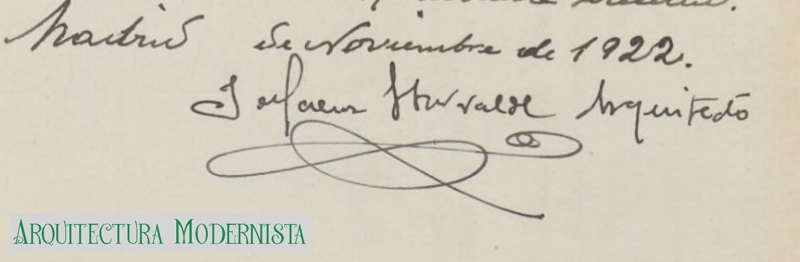 Madrid de Noviembre de 1922.
J Saenz Iturralde Arquitecto
Arquitectura Modernista